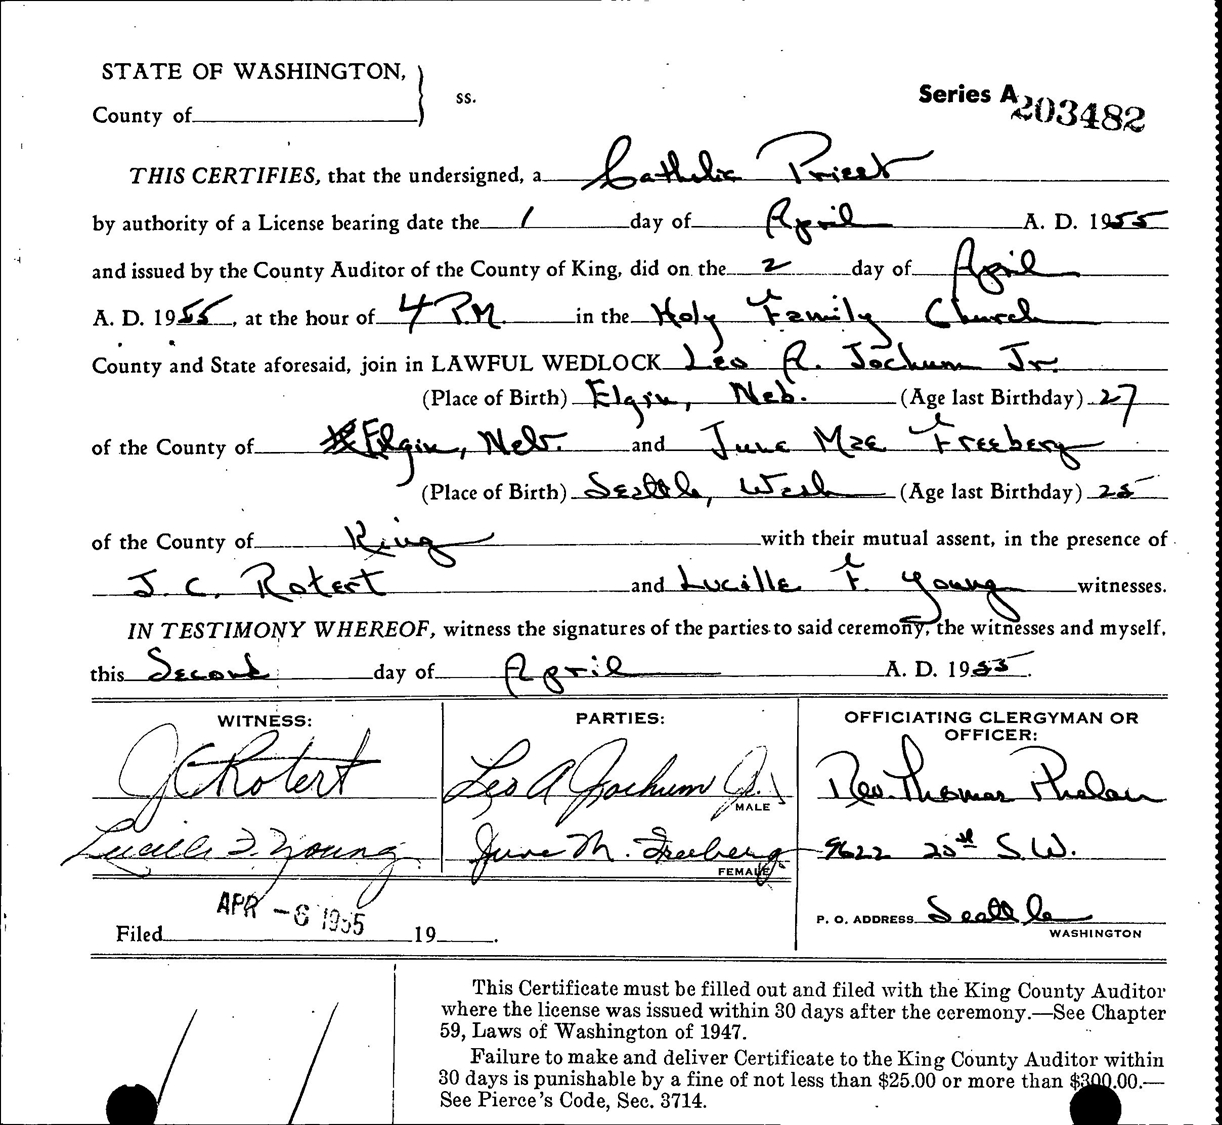 STATE OF WASHINGTON,
County of
ss.
Series A 203482
THIS CERTIFIES, that the undersigned, a Catholic Priest
by authority of a License bearing date the 1 day of April A. D. 1955
and issued by the County Auditor of the County of King, did on the 2 day of April
A. D. 1955, at the hour of 4 P.M. in the Holy Family Church
County and State aforesaid, join in LAWFUL WEDLOCK Leo A. Jochum Jr.
(Place of Birth) Elgin, Neb. (Age last Birthday) 27
of the County of Elgin, Nebr. and June Mae Freeberg
(Place of Birth) Seattle, Wash (Age last Birthday) 25
of the County of King with their mutual assent, in the presence of
J. C. Rotert and Lucille F. Young witnesses.
IN TESTIMONY WHEREOF, witness the signatures of the parties to said ceremony, the witnesses and myself,
this Second day of April A. D. 1955.
WITNESS:
J C Rotert
Lucille F. Young
PARTIES:
Leo A Jochum Jr.
MALE
June M. Freeberg
FEMALE
OFFICIATING CLERGYMAN OR
OFFICER:
Rev. Thomas Phelan
9622 20th S.W.
P. O. ADDRESS Seattle
WASHINGTON
APR -6 1955
Filed 19 .
This Certificate must be filled out and filed with the King County Auditor
where the license was issued within 30 days after the ceremony.—See Chapter
59, Laws of Washington of 1947.
Failure to make and deliver Certificate to the King County Auditor within
30 days is punishable by a fine of not less than $25.00 or more than $300.00.—
See Pierce's Code, Sec. 3714.